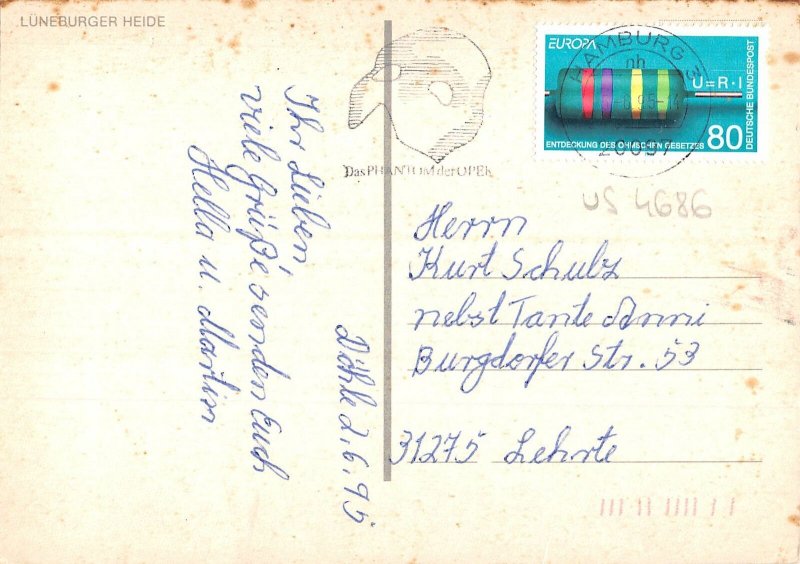 LÜNEBURGER HEIDE
Ihr Lieben
viele Grüße senden Euch
Hella u. Martin
Döhle 2.6.95
Das PHANTOM der OPER
HAMBURG
EUROPA
U=R·I
ENTDECKUNG DES OHMSCHEN GESETZES
80
DEUTSCHE BUNDESPOST
US 4686
Herrn
Kurt Schulz
nebst Tante Anni
Burgdorfer Str. 53
31275 Lehrte